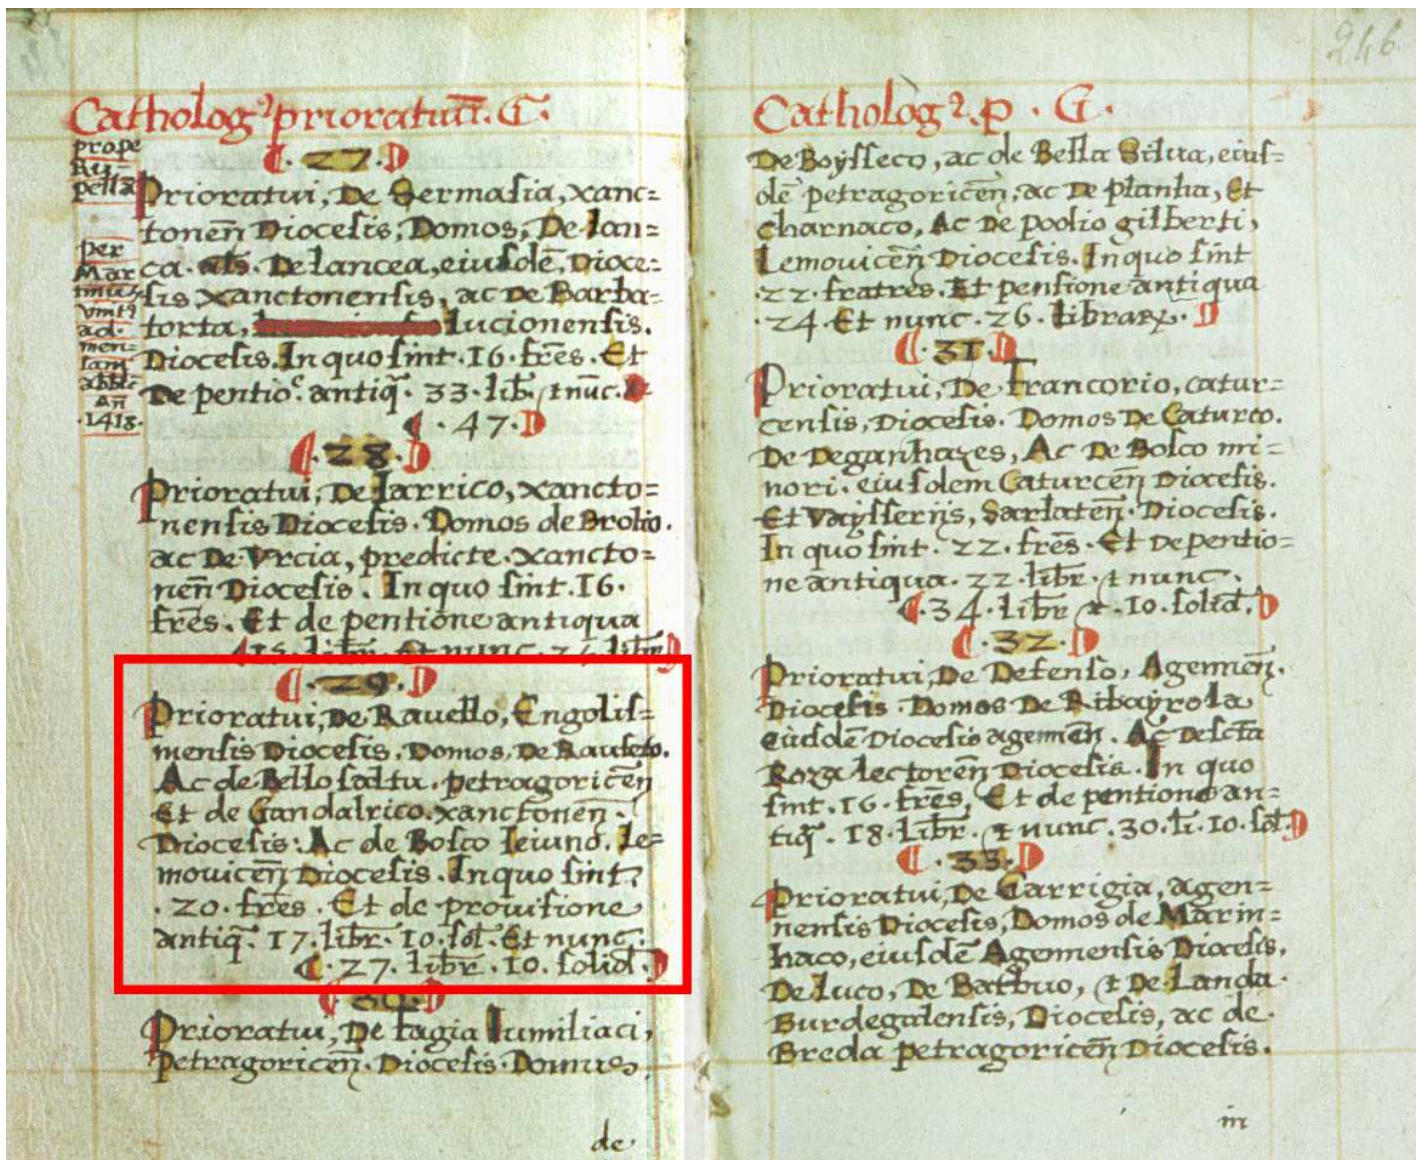 Catholog² prioratuū. G.
prope
Ru
pellā
per
Mar
tinū
vnit²
ad.
men=
sam
abbīē
An̄
.1418.
.27.
Prioratui, De Sermasia, xanc=
tonen̄ Diocesis, Domos, De lan=
ca. als. De lancea, eiusdē, Dioce=
sis xanctonensis, ac De Barba=
torta, lucionensis.
Diocesis. In quo sint. 16. frēs. Et
De pentio.ᵉ antiq̄. 33. lib̄. & nūc.
.47.
.28.
Prioratui, De Jarrico, xancto=
nensis Diocesis. Domos de Brolio.
ac De Vrcia, predicte. xancto=
nen̄ Diocesis. In quo sint. 16.
frēs. Et de pentione antiqua
.15. libr̄. Et nunc. 24 libr̄
.29.
Prioratui, De Rauello, Engolis=
mensis Diocesis. Domos, De Rauleto.
Ac de Bello saltu. petragoricen̄
Et de Gandalrico. xanctonen̄.
Diocesis: Ac de Bosco Ieiuno. le=
mouicen̄ Diocesis. In quo sint
.20. frēs. Et de prouisione
antiq̄. 17. libr̄. 10. sol̄. Et nunc.
.27. libr̄. 10. solid̄.
.30.
Prioratui, De fagia Iumiliaci,
petragoricen̄. Diocesis. Domus
de
246
Catholog². p. G.
De Boysseco, ac de Bella Silua, eius=
dē petragoricen̄, ac De planha, Et
Charnaco, Ac De podio gilberti,
Lemouicen̄ Diocesis. In quo sint
.22. fratres. Et pensione antiqua
.24 Et nunc. 26. librarꝝ.
.31.
Prioratui, De francorio, catur=
censis, Diocesis. Domos De Caturco.
De Deganhazes, Ac De Bosco mi=
nori. eiusdem Caturcen̄ Diocesis.
Et Vaysserijs, Sarlaten̄. Diocesis.
In quo sint. 22. frēs. Et De pentio=
ne antiqua. 22. libr̄. & nunc.
.34. libr̄ &. 10. solid̄.
.32.
Prioratui, De Defenso, Agennen̄.
Diocesis. Domos De Ribayrola
eiusdē Diocesis agennen̄. Ac De scta
Roza lectoren̄ Diocesis. In quo
sint. 16. frēs, Et de pentione an=
tiq̄. 18. libr̄. & nunc. 30. li. 10. sol̄.
.33.
Prioratui, De Garrigia, agen=
nensis Diocesis, Domos de Marin=
haco, eiusdē Agennensis Diocesis,
De luco, De Batbuo, & De Landa.
Burdegalensis, Diocesis, ac de.
Breda petragoricen̄ Diocesis.
in